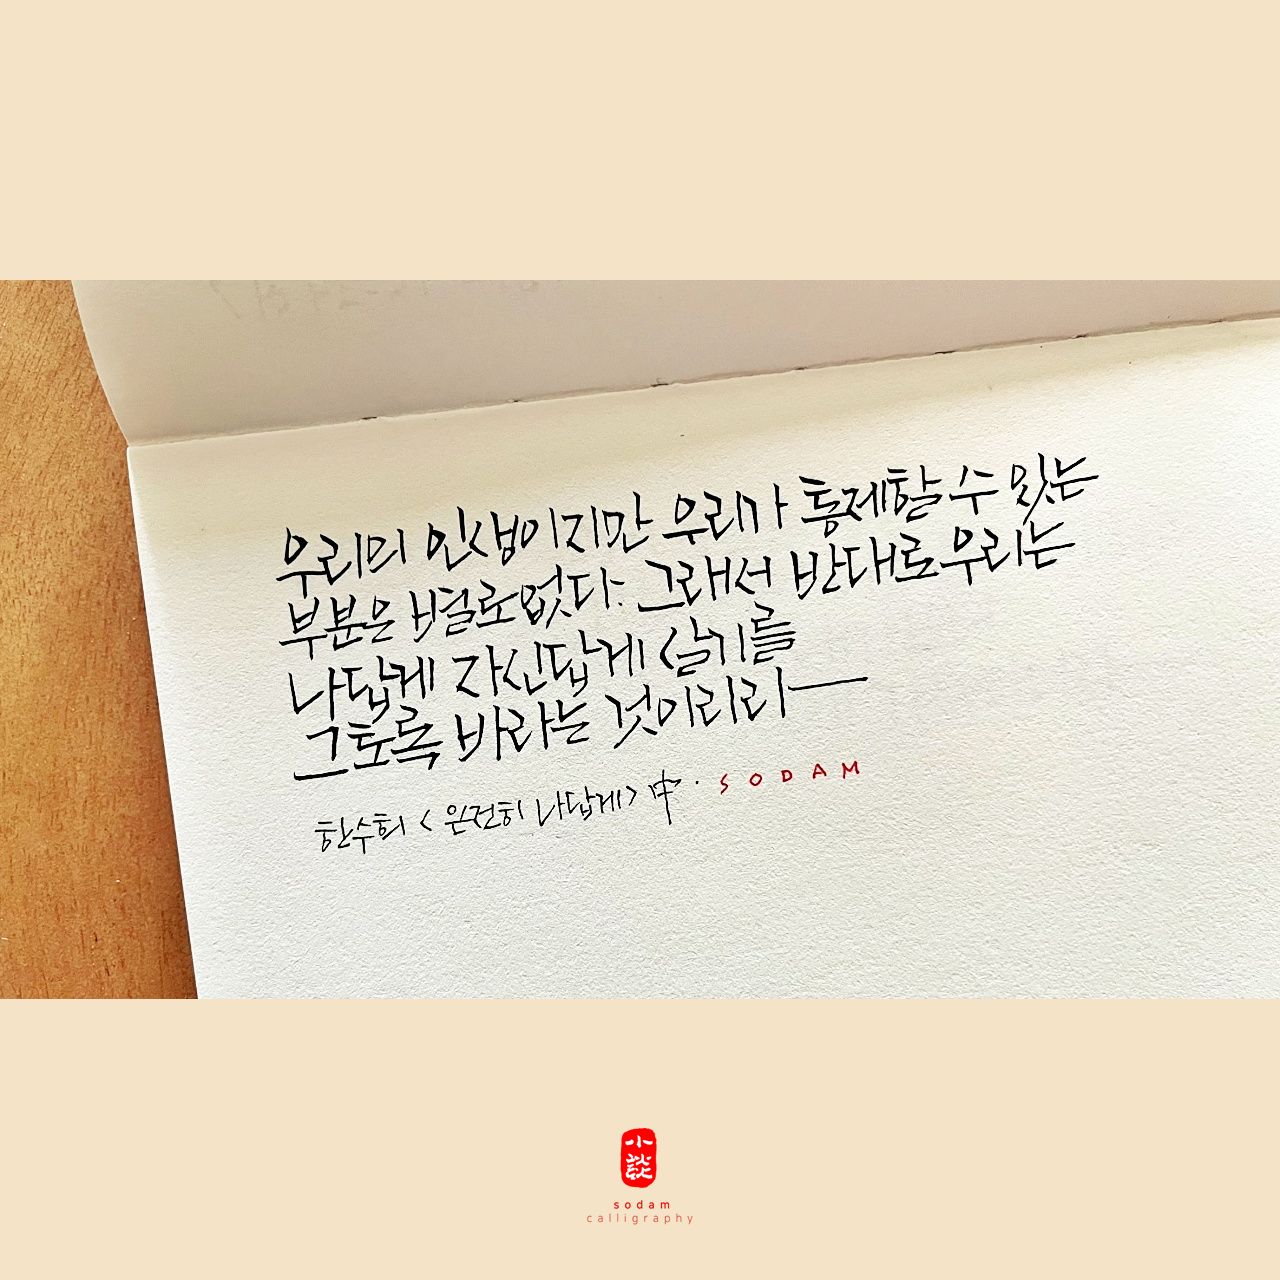 우리의 인생이지만 우리가 통제할 수 있는
부분은 별로 없다. 그래서 반대로 우리는
나답게 자신답게 살기를
그토록 바라는 것이리라
한수희 < 온전히 나답게 > 中. SODAM
小談
sodam
calligraphy